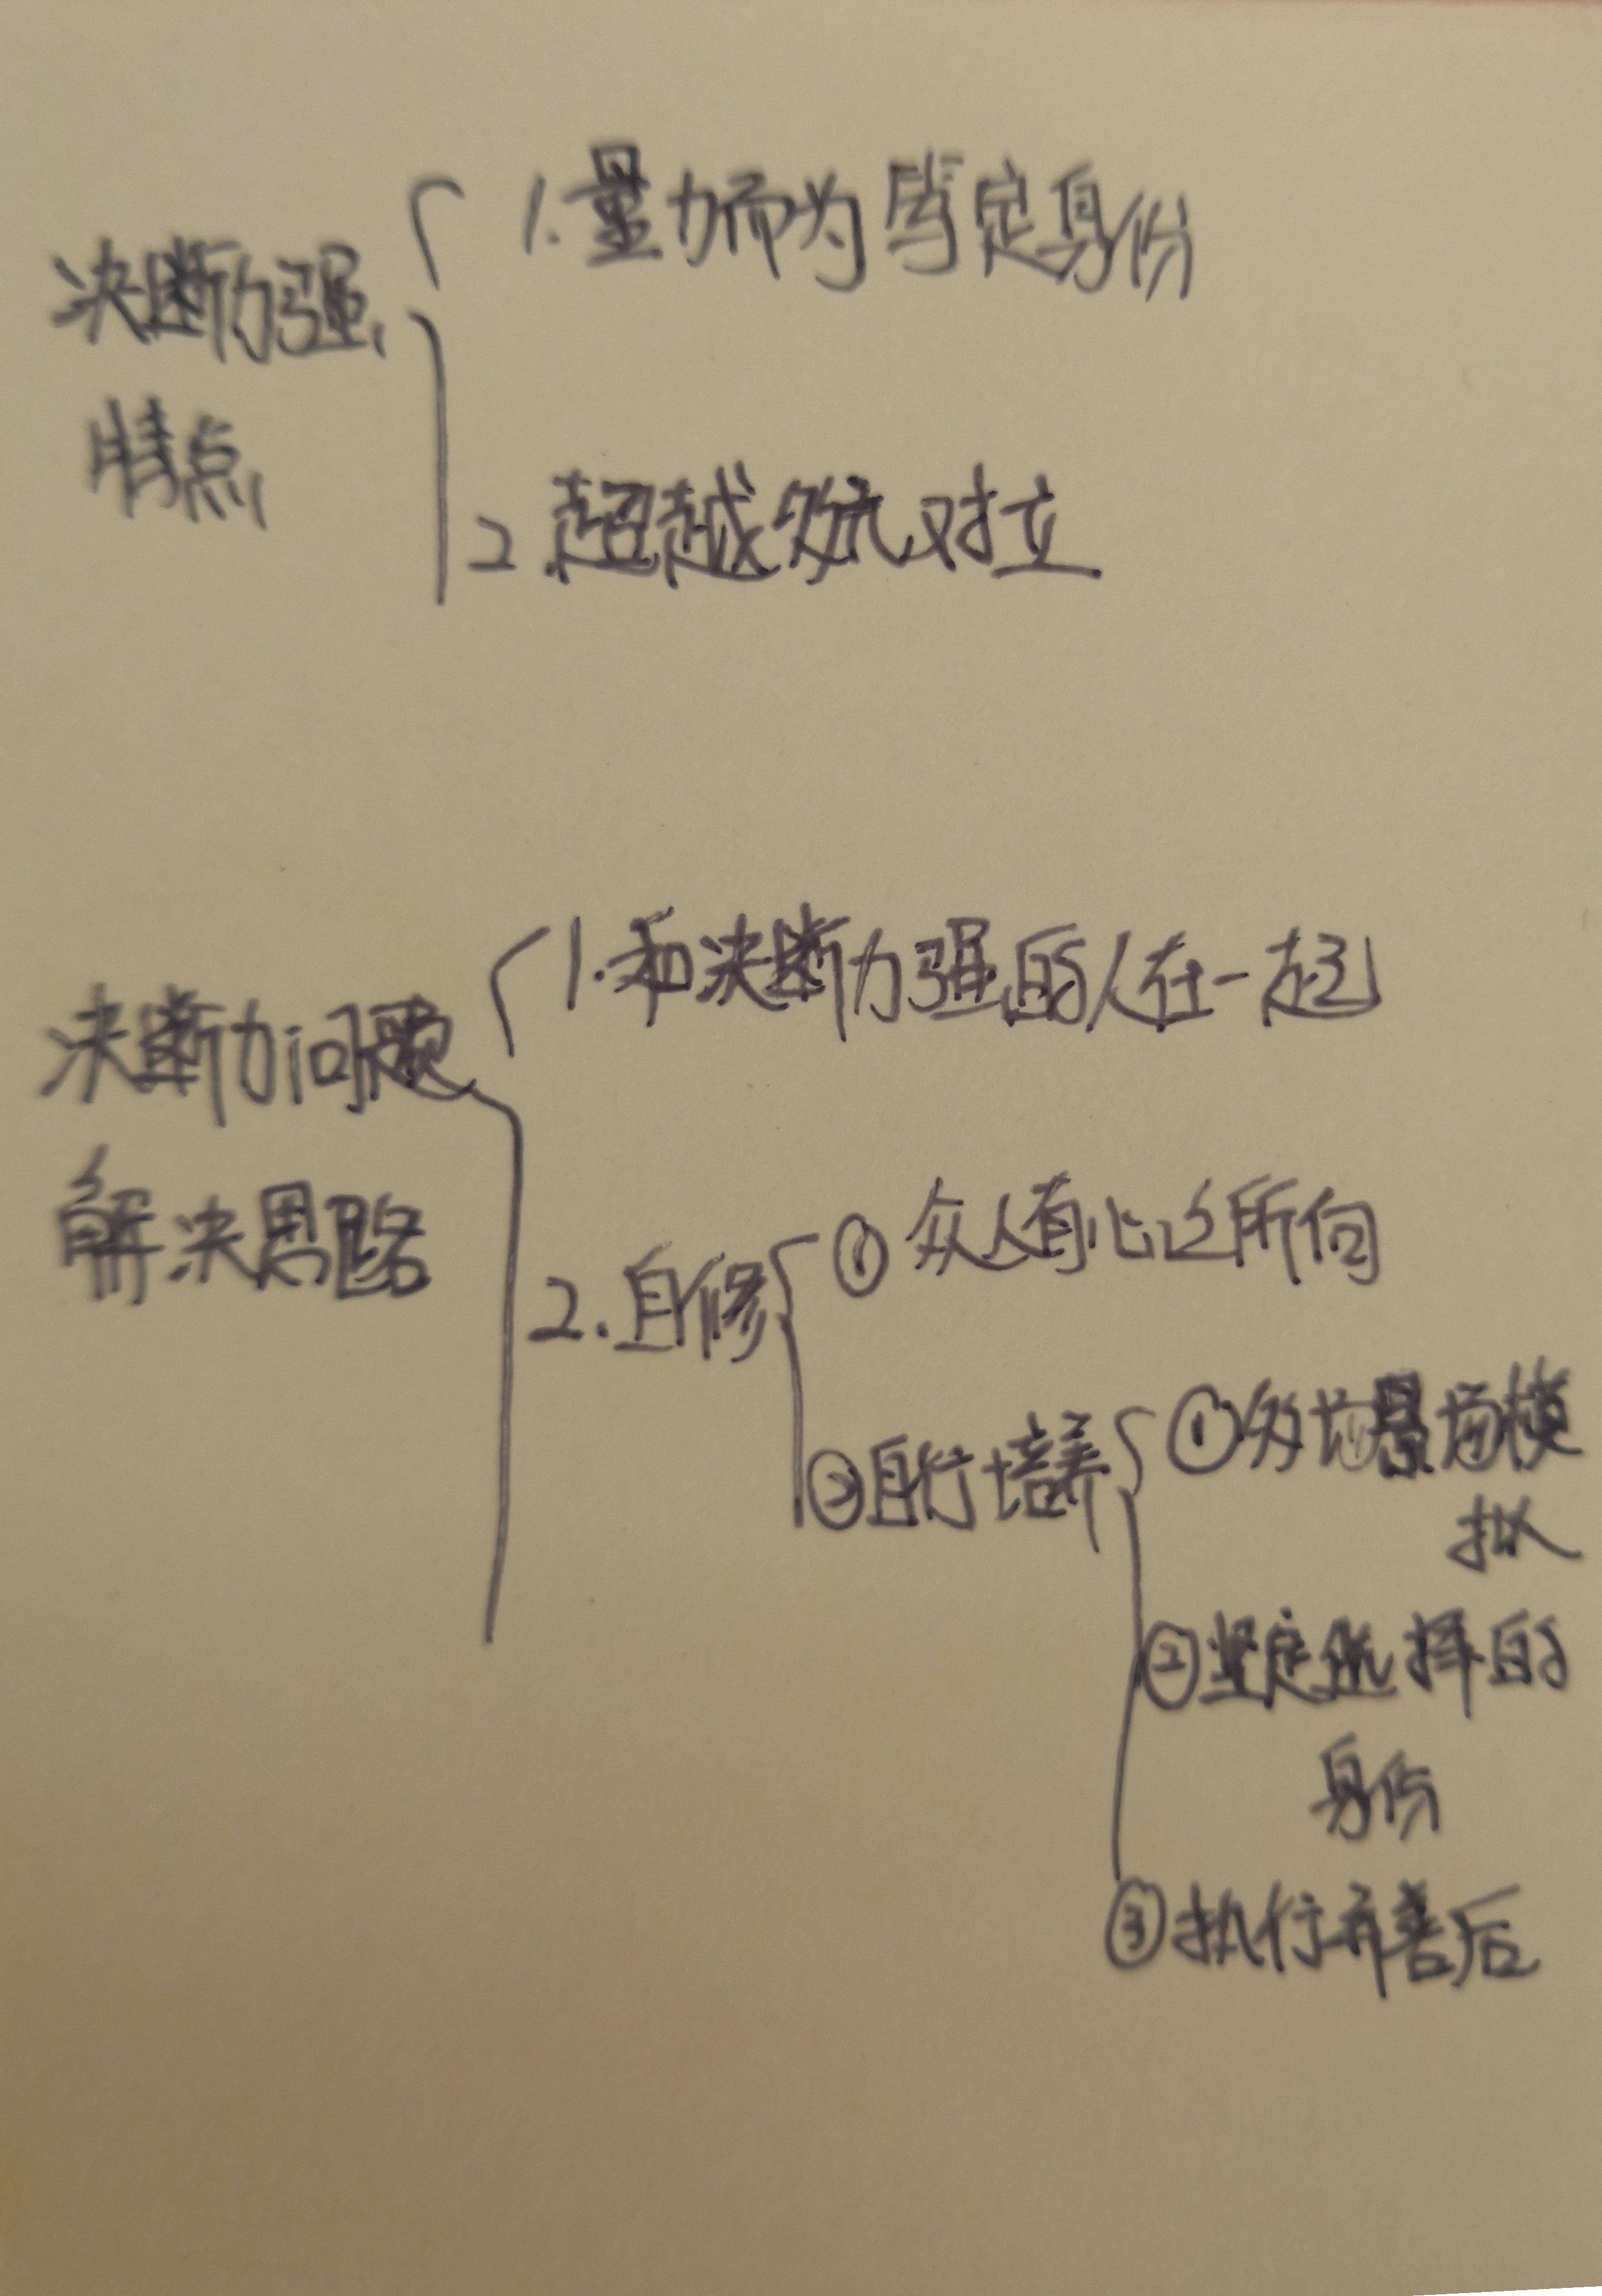 决断力强
特点
1.量力而为 笃定身份
2.超越 对立
决断力问题
解决思路
1.和决断力强的人在一起
2.自修
①众人有心之所向
②自行培养
①多场景场模
拟
②坚定选择的
身份
③执行再善后